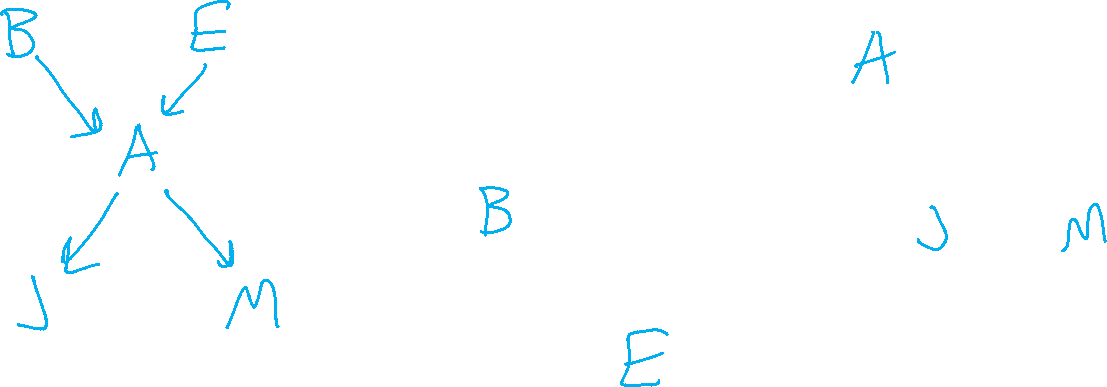 B E
A
J M
A
B
J M
E